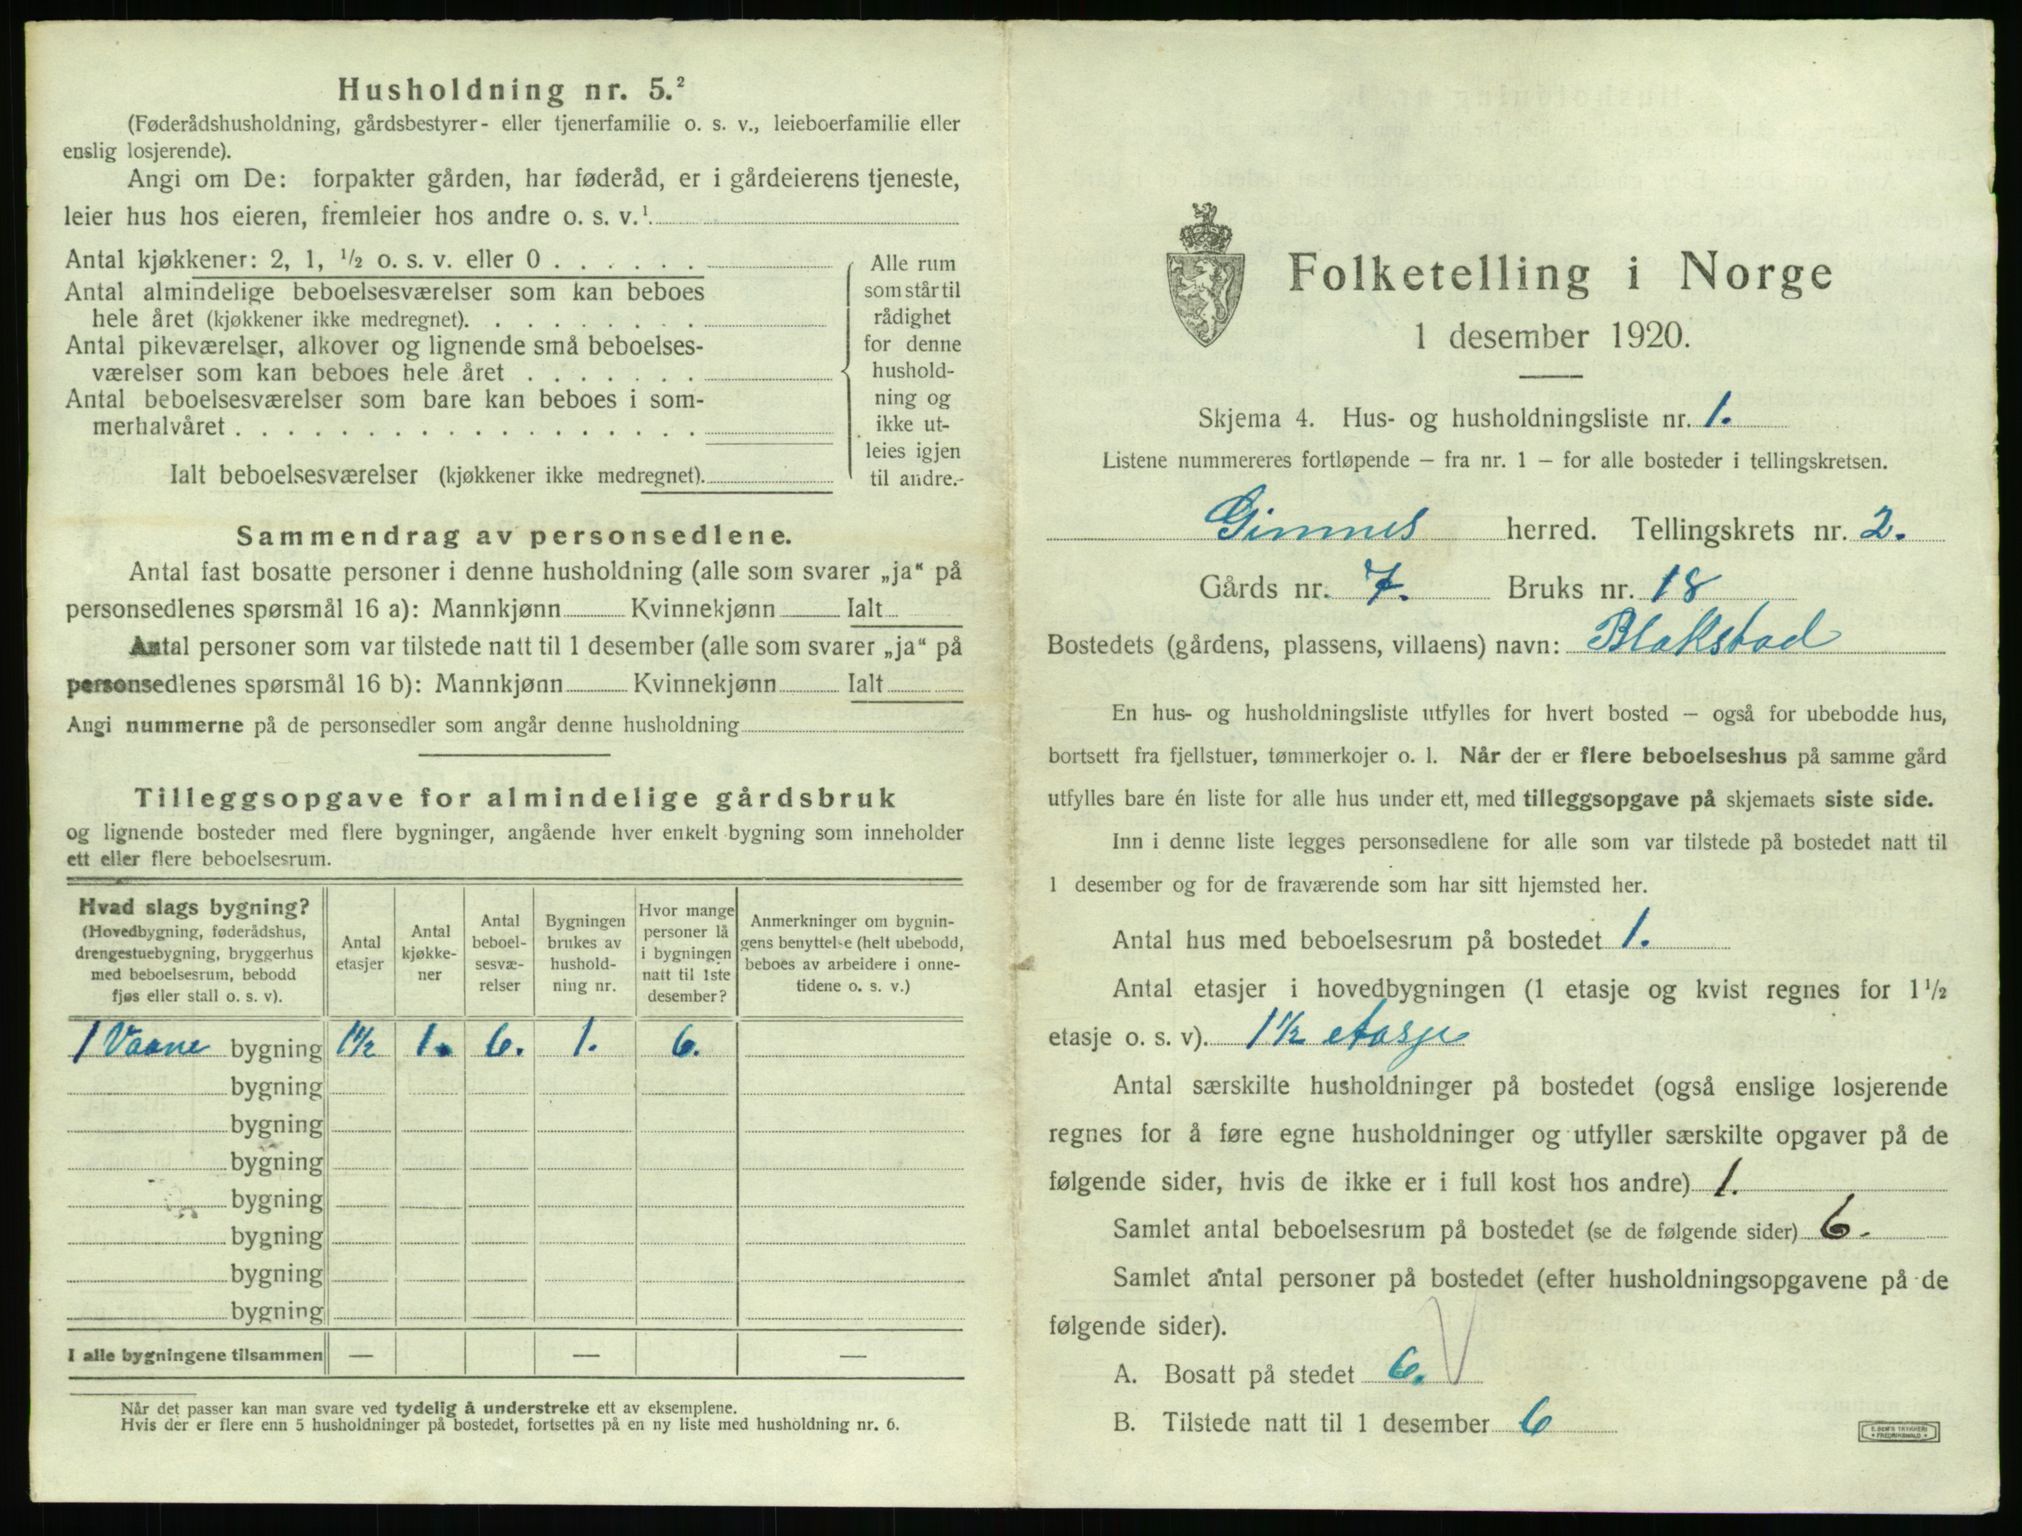 Husholdning nr. 5.²
(Føderådshusholdning, gårdsbestyrer- eller tjenerfamilie o. s. v., leieboerfamilie eller
enslig losjerende).
Angi om De: forpakter gården, har føderåd, er i gårdeierens tjeneste,
leier hus hos eieren, fremleier hos andre o. s. v.¹
Antal kjøkkener: 2, 1, ½ o. s. v. eller 0
Antal almindelige beboelsesværelser som kan beboes
hele året (kjøkkener ikke medregnet).
Antal pikeværelser, alkover og lignende små beboelses-
værelser som kan beboes hele året
Antal beboelsesværelser som bare kan beboes i som-
merhalvåret
Ialt beboelsesværelser (kjøkkener ikke medregnet).
Alle rum
som står til
rådighet
for denne
hushold-
ning og
ikke ut-
leies igjen
til andre.-
Sammendrag av personsedlene.
Antal fast bosatte personer i denne husholdning (alle som svarer „ja“ på
personsedlenes spørsmål 16 a): Mannkjønn Kvinnekjønn Ialt
Antal personer som var tilstede natt til 1 desember (alle som svarer „ja“ på
personsedlenes spørsmål 16 b): Mannkjønn Kvinnekjønn Ialt
Angi nummerne på de personsedler som angår denne husholdning
Tilleggsopgave for almindelige gårdsbruk
og lignende bosteder med flere bygninger, angående hver enkelt bygning som inneholder
ett eller flere beboelsesrum.
Hvad slags bygning?
(Hovedbygning, føderådshus,
drengestuebygning, bryggerhus
med beboelsesrum, bebodd
fjøs eller stall o. s. v).
Antal
etasjer
Antal
kjøkke-
ner
Antal
beboel-
sesvæ-
relser
Bygningen
brukes av
hushold-
ning nr.
Hvor mange
personer lå
i bygningen
natt til 1ste
desember?
Anmerkninger om bygnin-
gens benyttelse (helt ubebodd,
beboes av arbeidere i onne-
tidene o. s. v.)
1 Vaane bygning 1½ 1. 6. 1. 6.
bygning
bygning
bygning
bygning
bygning
bygning
bygning
I alle bygningene tilsammen — — —
Når det passer kan man svare ved tydelig å understreke ett av eksemplene.
Hvis der er flere enn 5 husholdninger på bostedet, fortsettes på en ny liste med husholdning nr. 6.
Folketelling i Norge
1 desember 1920.
Skjema 4. Hus- og husholdningsliste nr. 1.
Listene nummereres fortløpende – fra nr. 1 – for alle bosteder i tellingskretsen.
Gimnes herred. Tellingskrets nr. 2.
Gårds nr. 7. Bruks nr. 18
Bostedets (gårdens, plassens, villaens) navn: Blakstad
En hus- og husholdningsliste utfylles for hvert bosted – også for ubebodde hus,
bortsett fra fjellstuer, tømmerkojer o. l. Når der er flere beboelseshus på samme gård
utfylles bare én liste for alle hus under ett, med tilleggsopgave på skjemaets siste side.
Inn i denne liste legges personsedlene for alle som var tilstede på bostedet natt til
1 desember og for de fraværende som har sitt hjemsted her.
Antal hus med beboelsesrum på bostedet 1.
Antal etasjer i hovedbygningen (1 etasje og kvist regnes for 1½
etasje o. s. v). 1½ etasje
Antal særskilte husholdninger på bostedet (også enslige losjerende
regnes for å føre egne husholdninger og utfyller særskilte opgaver på de
følgende sider, hvis de ikke er i full kost hos andre) 1.
Samlet antal beboelsesrum på bostedet (se de følgende sider) 6.
Samlet antal personer på bostedet (efter husholdningsopgavene på de
følgende sider).
A. Bosatt på stedet 6. V
B. Tilstede natt til 1 desember 6